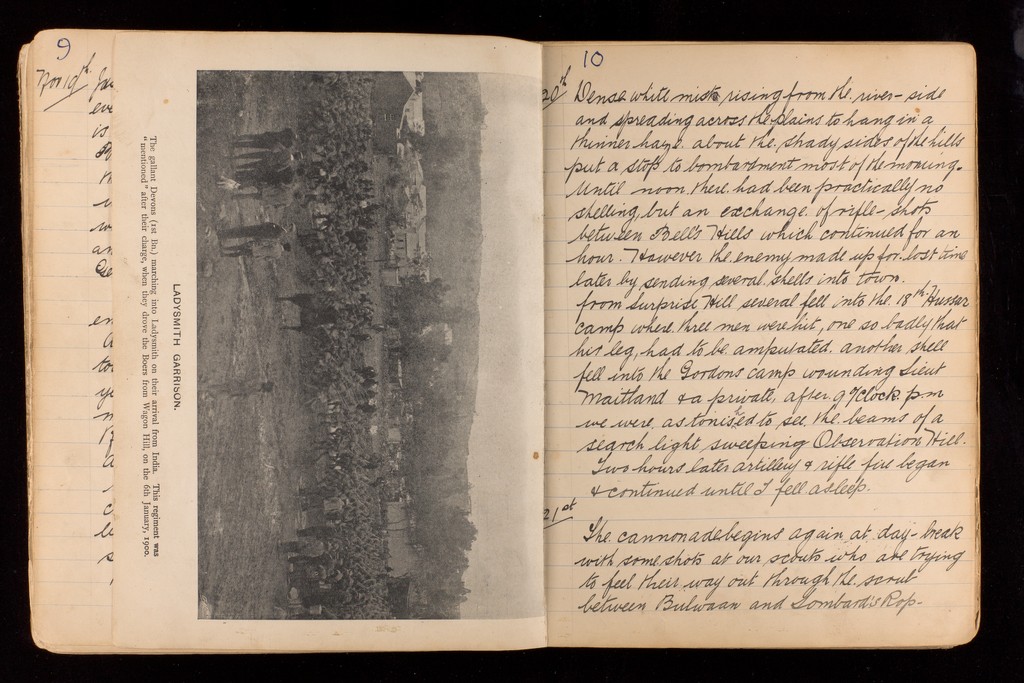 9
Nov 19th
LADYSMITH GARRISON.
The gallant Devons (1st Bn.) marching into Ladysmith on their arrival from India. This regiment was
"mentioned" after their charge, when they drove the Boers from Wagon Hill, on the 6th January, 1900.
10
20th Dense white mist rising from the river-side
and spreading across the plains to hang in a
thinner haze about the shady sides of the hills
put a stop to bombardment most of the morning.
Until noon there had been practically no
shelling, but an exchange of rifle-shots
between Bell's Hills which continued for an
hour. However the enemy made up for lost time
later by sending several shells into town.
from Surprise Hill several fell into the 18th Hussar
camp where three men were hit, one so badly that
his leg, had to be amputated. another shell
fell into the Gordons camp wounding Lieut
Maitland & a private, after 9 O'clock p.m
we were astonished to see the beams of a
search light sweeping Observation Hill.
Two hours later artillery & rifle fire began
& continued until I fell asleep.
21st
The cannonade begins again at day-break
with some shots at our scouts who are trying
to feel their way out through the scrut
between Bulwaan and Lombard's Kop-